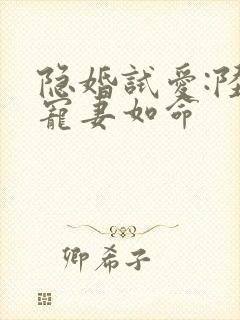 隐婚試愛:陸
寵妻如命
卿希子